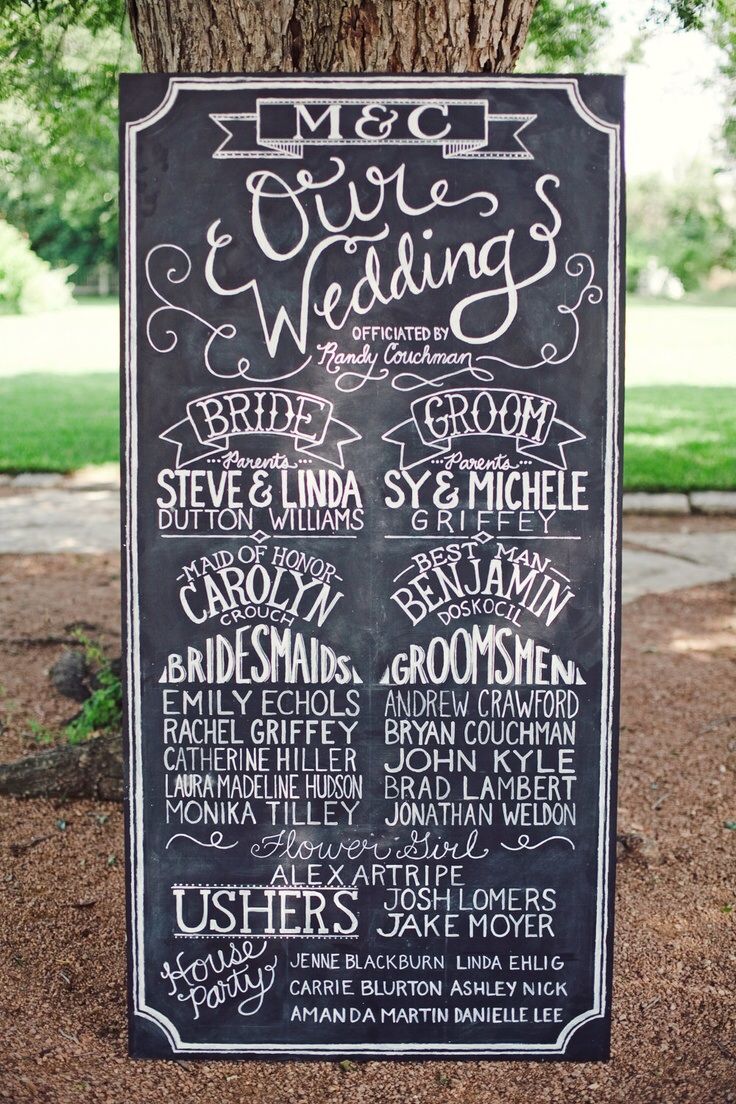 M & C
Our
Wedding
OFFICIATED BY
Randy Couchman
BRIDE
Parents
STEVE & LINDA
DUTTON WILLIAMS
MAID OF HONOR
CAROLYN
CROUCH
BRIDESMAIDS
EMILY ECHOLS
RACHEL GRIFFEY
CATHERINE HILLER
LAURA MADELINE HUDSON
MONIKA TILLEY
GROOM
Parents
SY & MICHELE
GRIFFEY
BEST MAN
BENJAMIN
DOSKOCIL
GROOMSMEN
ANDREW CRAWFORD
BRYAN COUCHMAN
JOHN KYLE
BRAD LAMBERT
JONATHAN WELDON
Flower Girl
ALEX ARTRIPE
USHERS
JOSH LOMERS
JAKE MOYER
House
Party
JENNE BLACKBURN LINDA EHLIG
CARRIE BLURTON ASHLEY NICK
AMANDA MARTIN DANIELLE LEE